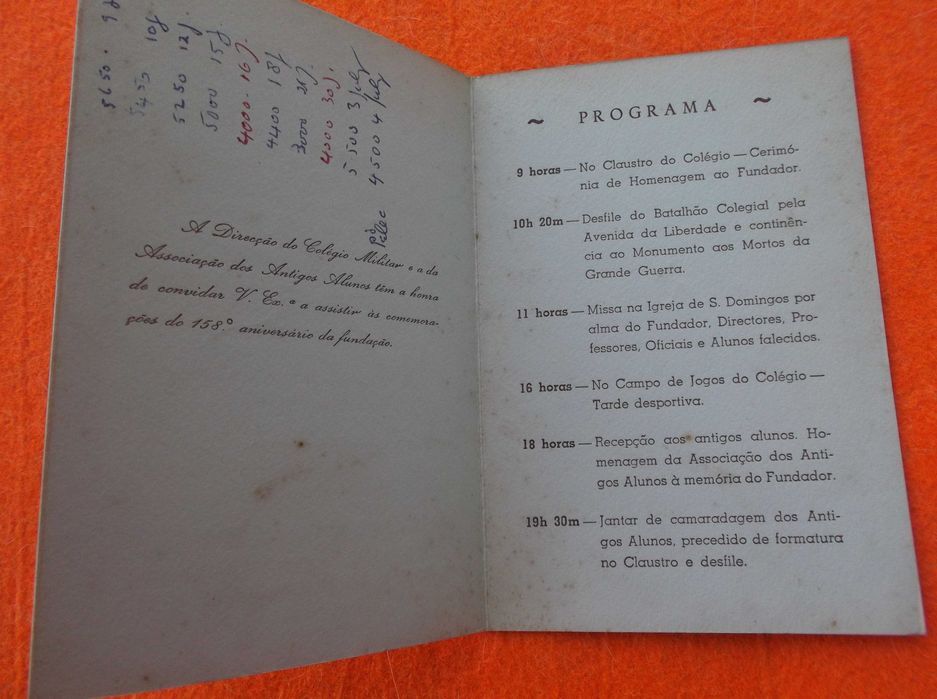 5650 . 9j
5450 10j
5250 12j
5000 15j
4000 . 16j.
4400 18j
3000 21j.
4000 30j.
5500 3 july
4500 4 july
A Direcção do Colégio Militar e a da
Associação dos Antigos Alunos têm a honra
de convidar V. Ex.ª a assistir às comemora-
ções do 158.º aniversário da fundação.
~ PROGRAMA ~
9 horas — No Claustro do Colégio — Cerimó-
nia de Homenagem ao Fundador.
10h 20m — Desfile do Batalhão Colegial pela
Avenida da Liberdade e continên-
cia ao Monumento aos Mortos da
Grande Guerra.
11 horas — Missa na Igreja de S. Domingos por
alma do Fundador, Directores, Pro-
fessores, Oficiais e Alunos falecidos.
16 horas — No Campo de Jogos do Colégio —
Tarde desportiva.
18 horas — Recepção aos antigos alunos. Ho-
menagem da Associação dos Anti-
gos Alunos à memória do Fundador.
19h 30m — Jantar de camaradagem dos Anti-
gos Alunos, precedido de formatura
no Claustro e desfile.